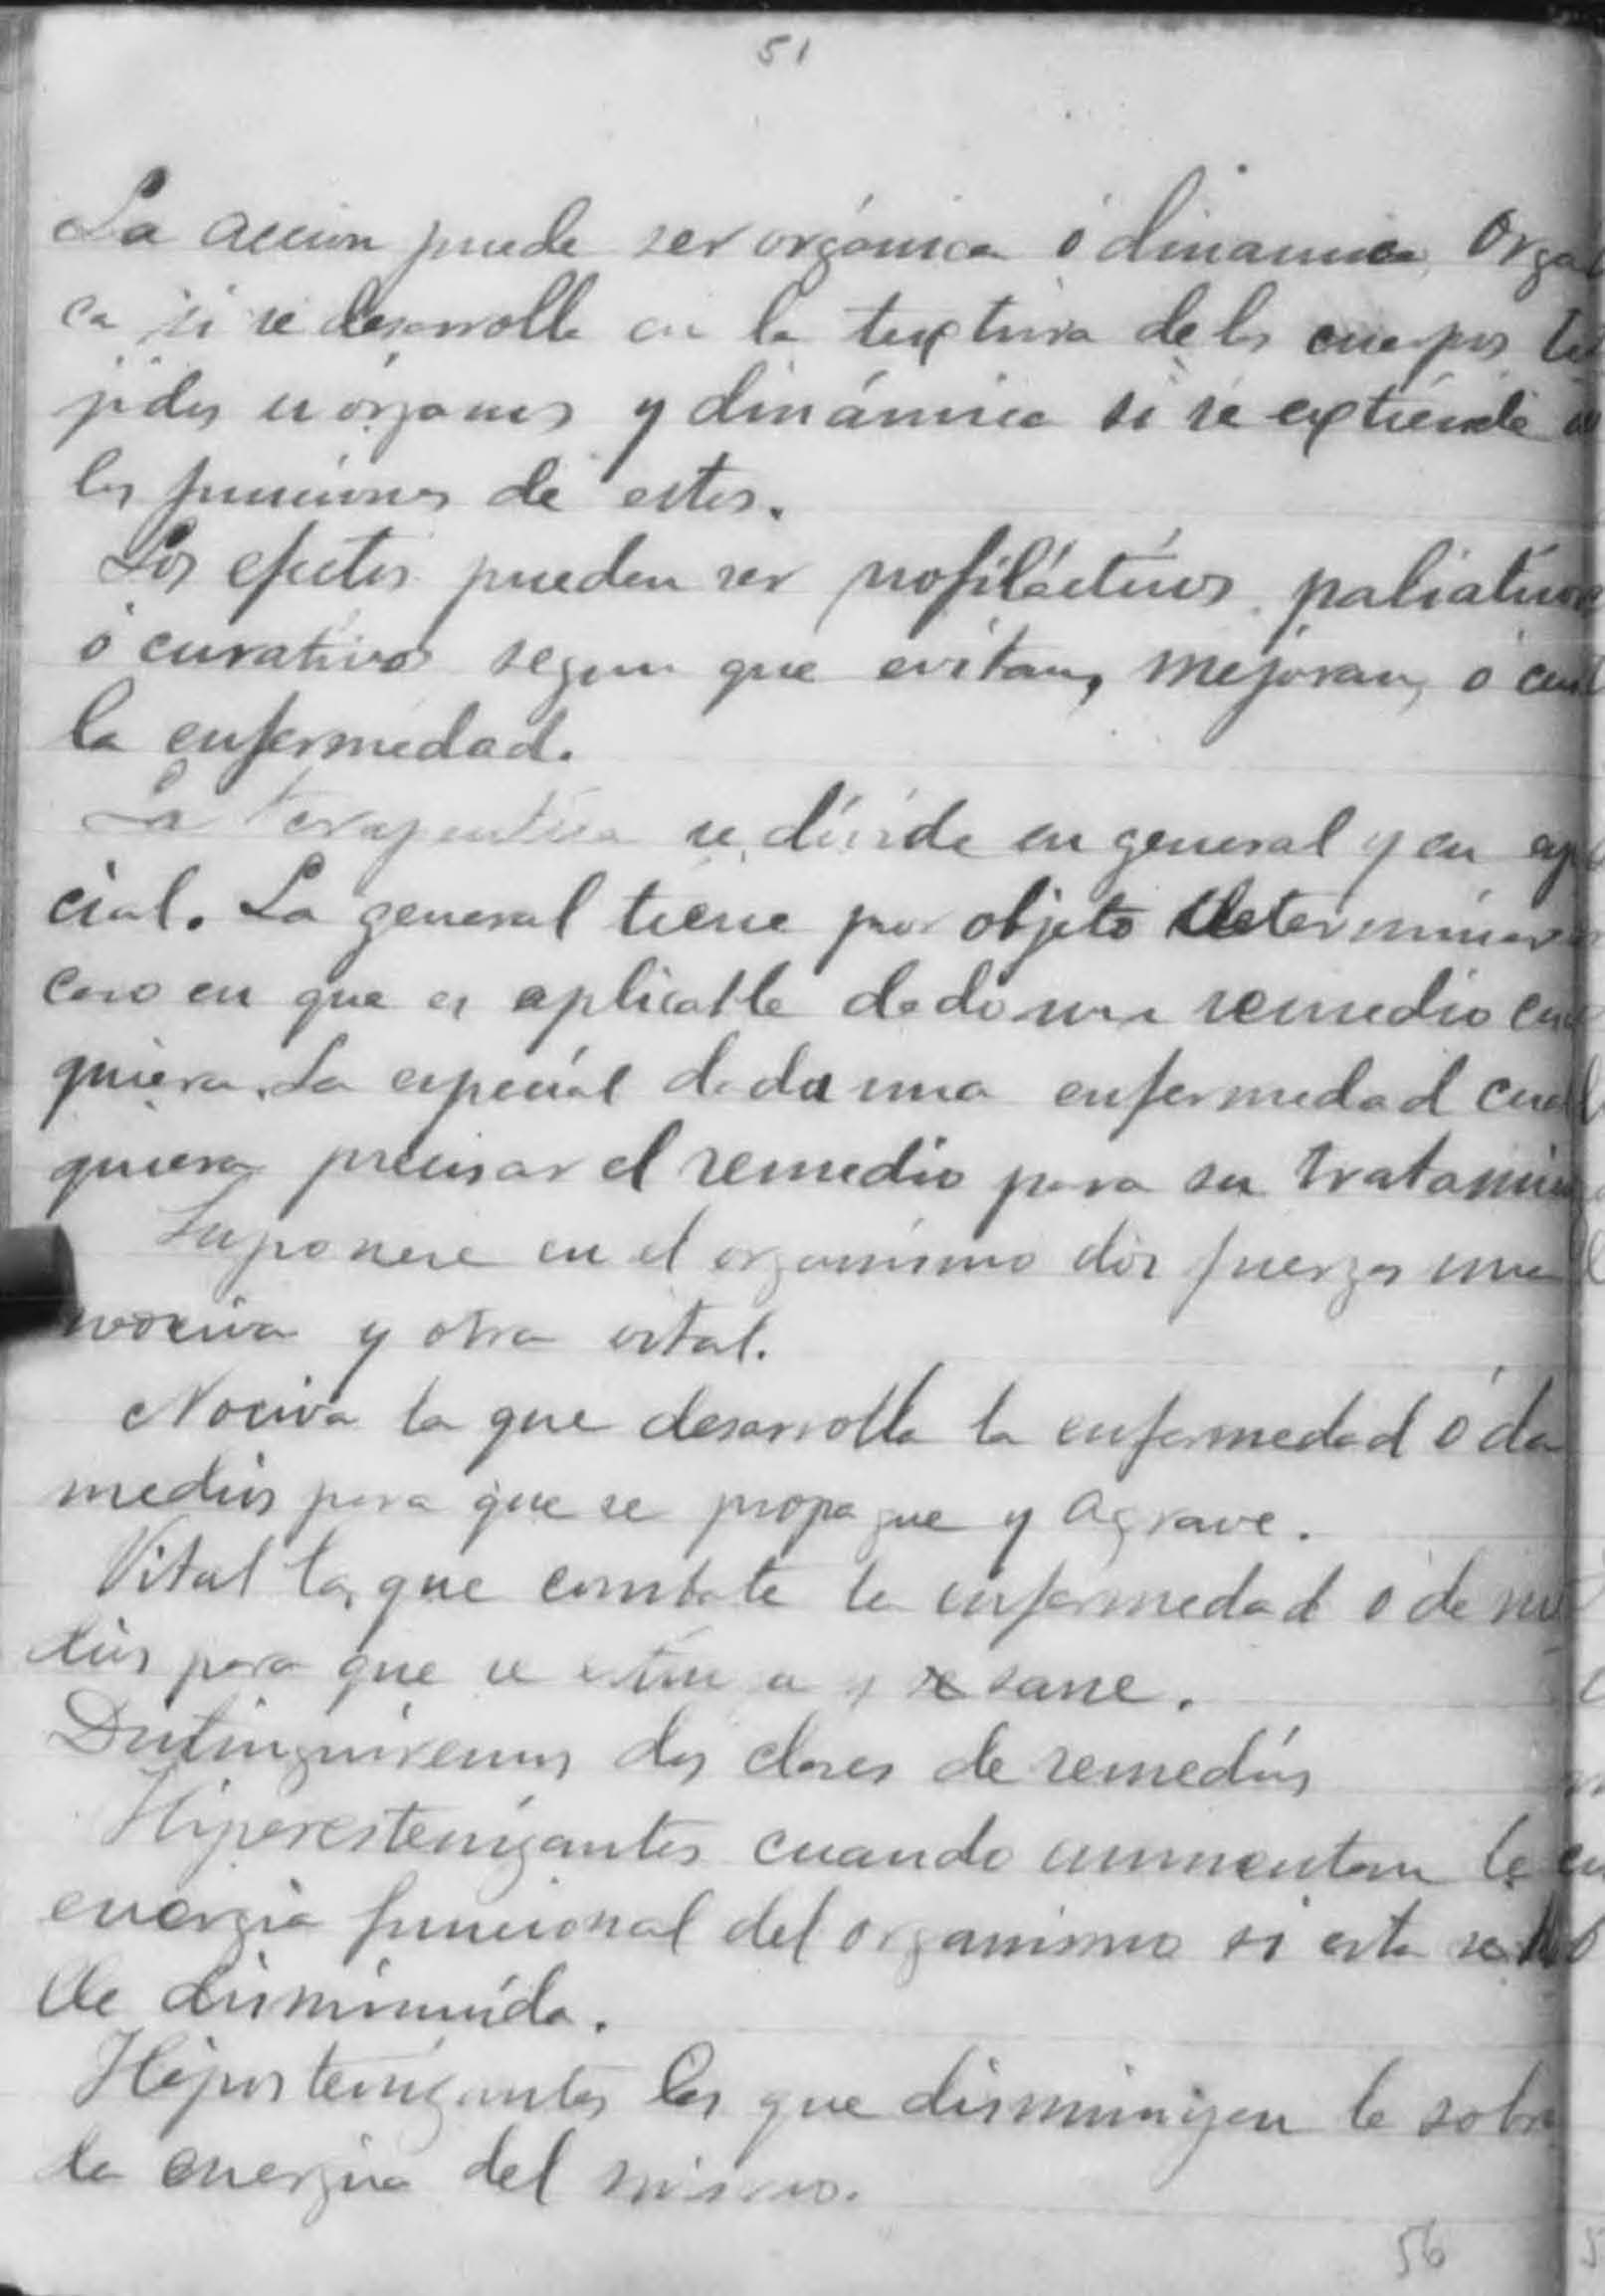 51
La accion puede ser orgánica ó dinamica Orga
ca si se desarrolla en la textura de los cuerpos te
jidos u órganos y dinámica si se extiende a
las funciones de estos.
Los efectos pueden ser profilácticos, paliativos
ó curativos segun que evitan, mejoran, ó cu
la enfermedad.
La terapeutica se divide en general y en esp
cial. La general tiene por objeto determinar
caso en que es aplicable dado un remedio cu
quiera. La especial dada una enfermedad cual
quiera precisar el remedio para su tratamien
Suponese en el organismo dos fuerzas una
nociva y otra vital.
Nociva la que desarrolla la enfermedad ó da
medios para que se propague y agrave.
Vital la que combate la enfermedad o da me
dios para que se y sane.
Distinguiremos dos clases de remedios
Hiperestenizantes cuando aumentan la en
energia funcional del organismo si esta se
de disminuida.
Hipostenizantes los que disminuyen la sobre
la energia del mismo.
56